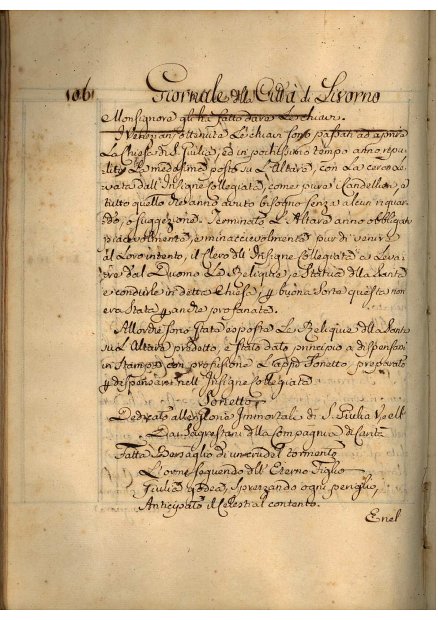 106
Giornale della Città di Livorno
Monsignore gli ha fatto dare Le chiavi.
ottenute Le chiavi sono passati ad aprire
La Chiesa di S. Giulia, ed in pochissimo tempo anno
posto su L'Altare, con La cera
vata dall' Insigne Collegiata, come pure i candellieri, e
tutto quello che anno avuto bisogno senza alcun riguar
do, o suggezione. Terminato L'Altare anno obbligato
piacevolmente, e minaccievolmente pur di venire
al Loro intento, il Clero dell' Insigne Collegiata a Leva
re dal Duomo Le Reliquie, e Statua della Santa
e condurle in detta Chiesa, buona sorte questa non
era stata anche profanata.
Allorchè sono stata esposte Le Reliquie della Santa
su L'Altare predetto, è stato dato principio a dispensare
in Stampa con profusione L'appº Sonetto, preparato
dispensarsi nell' Insigne Collegiata
Sonetto
Dedicato Immortale di S. Giulia
Dai Sagrestani della Compagnia di Carità
Fatta Bersaglio di un crudel tormento
L'orme seguendo dell' Eterno Figlio
Giulia sprezzando ogni periglio,
Anticipato il Celestial contento.
E nel